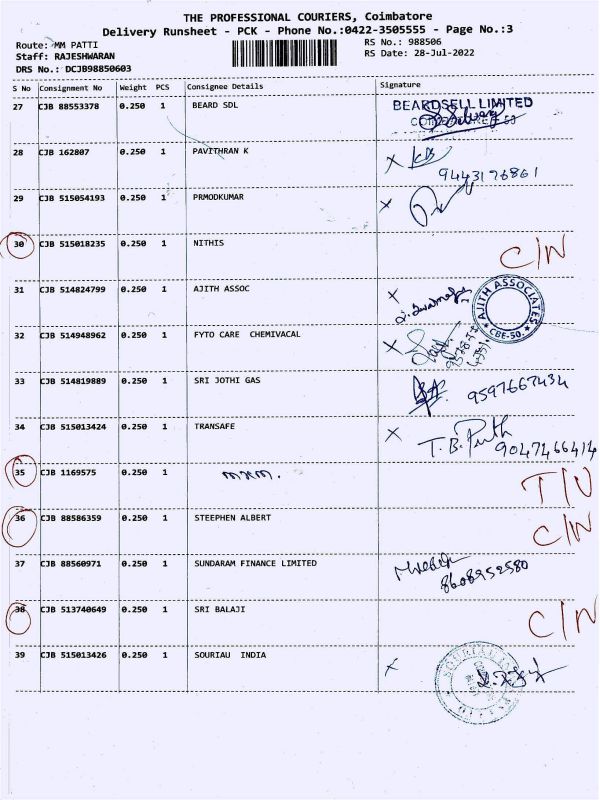 THE PROFESSIONAL COURIERS, Coimbatore
Delivery Runsheet - PCK - Phone No.:0422-3505555 - Page No.:3
Route: MM PATTI RS No.: 988506
Staff: RAJESHWARAN RS Date: 28-Jul-2022
DRS No.: DCJB98850603
S No Consignment No Weight PCS Consignee Details Signature
27 CJB 88553378 0.250 1 BEARD SDL BEARDSELL LIMITED
28 CJB 162807 0.250 1 PAVITHRAN K X
9443176861
29 CJB 515054193 0.250 1 PRMODKUMAR X
30 CJB 515018235 0.250 1 NITHIS C/N
31 CJB 514824799 0.250 1 AJITH ASSOC X AJITH ASSOCIATES
CBE-50.
32 CJB 514948962 0.250 1 FYTO CARE CHEMIVACAL X
33 CJB 514819889 0.250 1 SRI JOTHI GAS 9597667434
34 CJB 515013424 0.250 1 TRANSAFE X T.B.
9047466414
35 CJB 1169575 0.250 1 T/N
36 CJB 88586359 0.250 1 STEEPHEN ALBERT C/N
37 CJB 88560971 0.250 1 SUNDARAM FINANCE LIMITED
8608952580
38 CJB 513740649 0.250 1 SRI BALAJI C/N
39 CJB 515013426 0.250 1 SOURIAU INDIA X